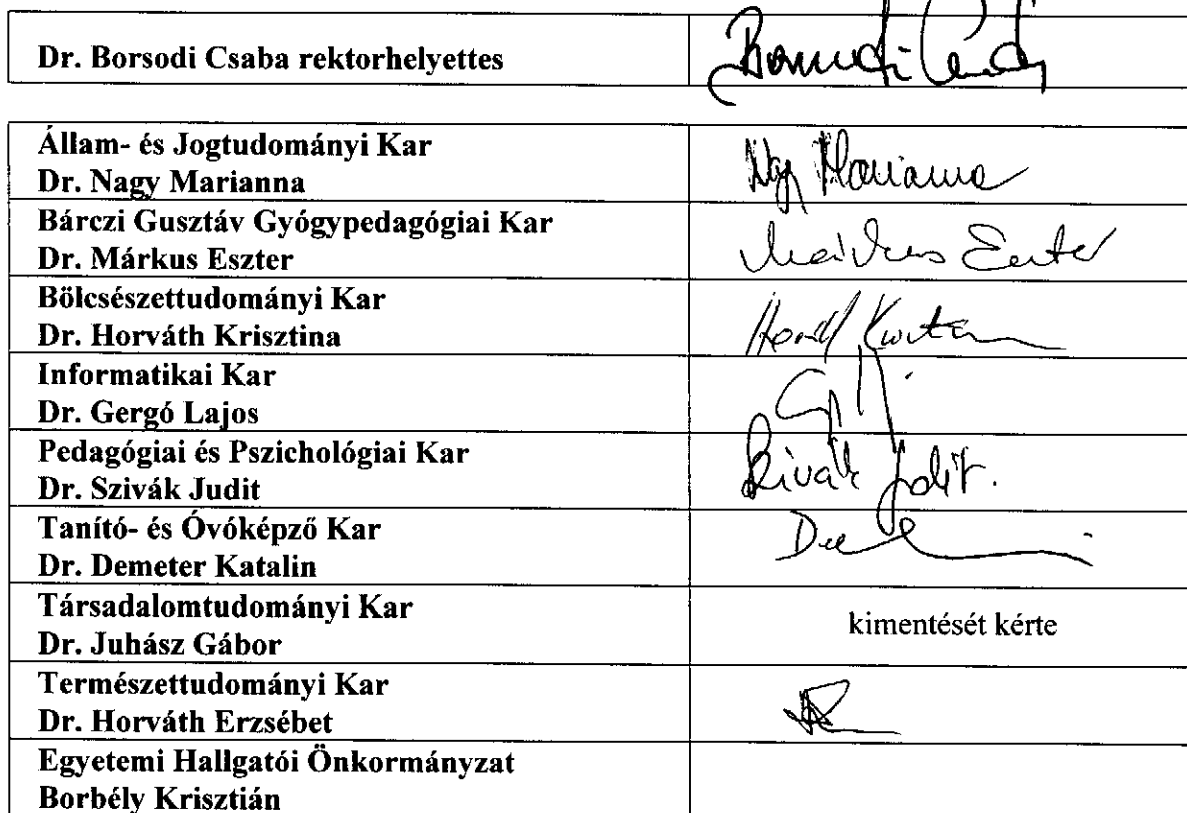 Dr. Borsodi Csaba rektorhelyettes
Állam- és Jogtudományi Kar
Dr. Nagy Marianna
Nagy Marianna
Bárczi Gusztáv Gyógypedagógiai Kar
Dr. Márkus Eszter
Márkus Eszter
Bölcsészettudományi Kar
Dr. Horváth Krisztina
Informatikai Kar
Dr. Gergó Lajos
Pedagógiai és Pszichológiai Kar
Dr. Szivák Judit
Szivák Judit.
Tanító- és Óvóképző Kar
Dr. Demeter Katalin
Társadalomtudományi Kar
Dr. Juhász Gábor
kimentését kérte
Természettudományi Kar
Dr. Horváth Erzsébet
Egyetemi Hallgatói Önkormányzat
Borbély Krisztián